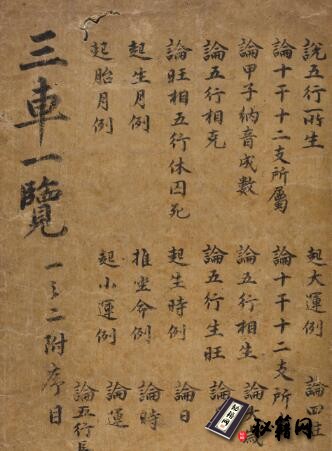 說五行所生
論十干十二支所屬
論甲子納音成數
論五行相克
論旺相五行休囚死
起生月例
起胎月例
起大運例
論十干十二支所
論五行相生
論五行生旺
起生時例
推坐命例
起小運例
論四柱
論日
論時
論運
論五行長
三車一覽
一之二附序目
秘籍网